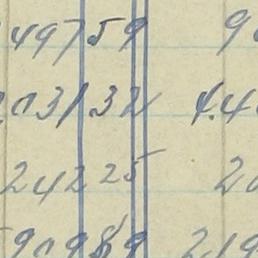 497 59 9
203132 4.4
242 25 20
90989 219